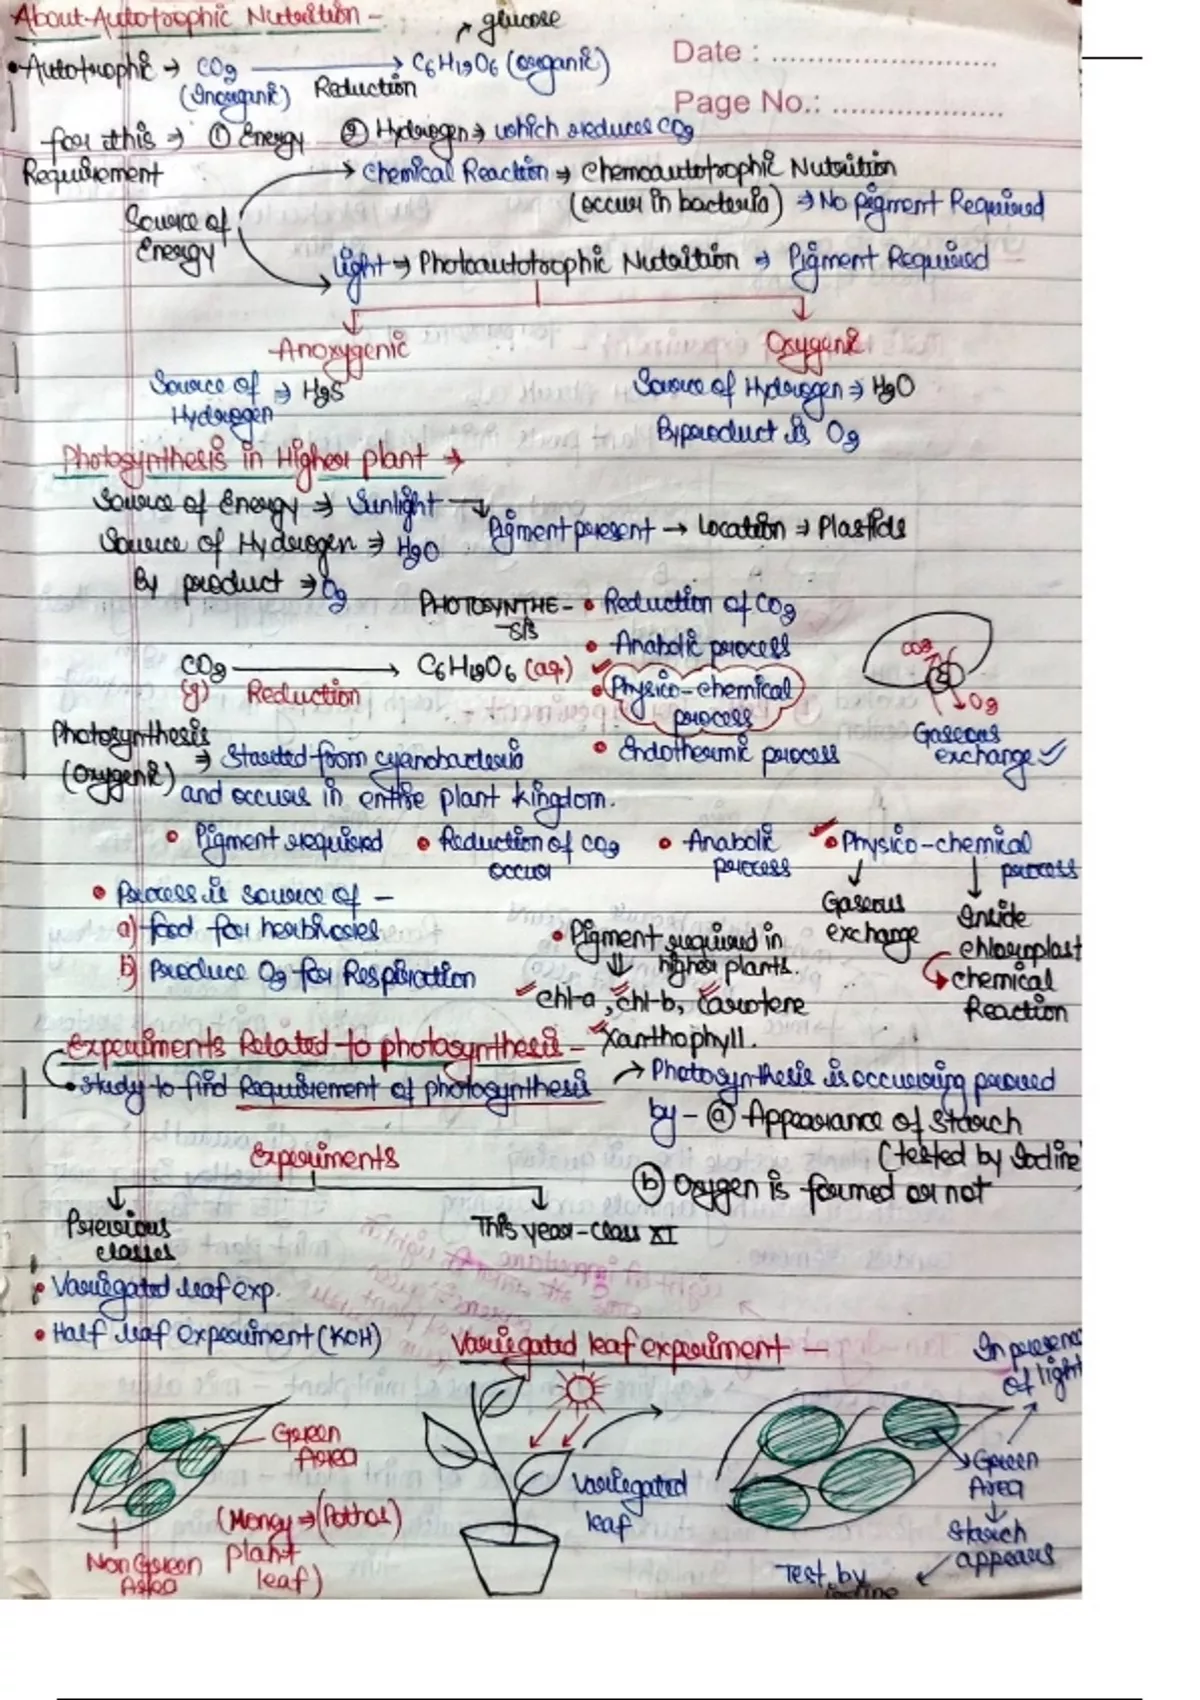 About Autotrophic Nutrition -
glucose
Date : ..........................
Page No.: ...................
• Autotrophic → CO2 → C6H12O6 (organic)
(Inorganic) Reduction
for this → ① Energy ② Hydrogen → which reduces CO2
Requirement
Chemical Reaction ⇒ Chemoautotrophic Nutrition
(occur in bacteria) ⇒ No pigment Required
Source of
Energy
light → Photoautotrophic Nutrition ⇒ Pigment Required
Anoxygenic
Oxygenic
Source of ⇒ H2S
Hydrogen
Source of Hydrogen ⇒ H2O
Byproduct is O2
Photosynthesis in Higher plant →
Source of Energy ⇒ Sunlight
Pigment present → Location ⇒ Plastids
Source of Hydrogen ⇒ H2O
By product → O2
PHOTOSYNTHE-
SIS
• Reduction of CO2
• Anabolic process
• Physico-chemical
process
• Endothermic process
CO2 → C6H12O6 (aq)
(g) Reduction
CO2
O2
Gaseous
exchange ✓
Photosynthesis
(Oxygenic) ⇒ Started from cyanobacteria
and occurs in entire plant kingdom.
• Pigment required • Reduction of CO2
occur
• Anabolic
process
• Physico-chemical
process
Gaseous
exchange
Inside
chloroplast
chemical
Reaction
• Process is source of -
a) food for herbivores
b) Produce O2 for Respiration
• Pigment required in
higher plants.
chl-a, chl-b, Carotene
Xanthophyll.
Experiments Related to photosynthesis -
• study to find Requirement of photosynthesis
→ Photosynthesis is occurring proved
by - ⓐ Appearance of Starch
(tested by Iodine
ⓑ Oxygen is formed or not
Experiments
Previous
classes
This year - Class XI
• Variegated leaf exp.
• Half leaf experiment (KOH)
Variegated leaf experiment -
In presence
of light
Green
Area
(Money → (Pothos)
plant
leaf)
Non Green
Area
Variegated
leaf
Green
Area
Starch
appears
Test by
iodine